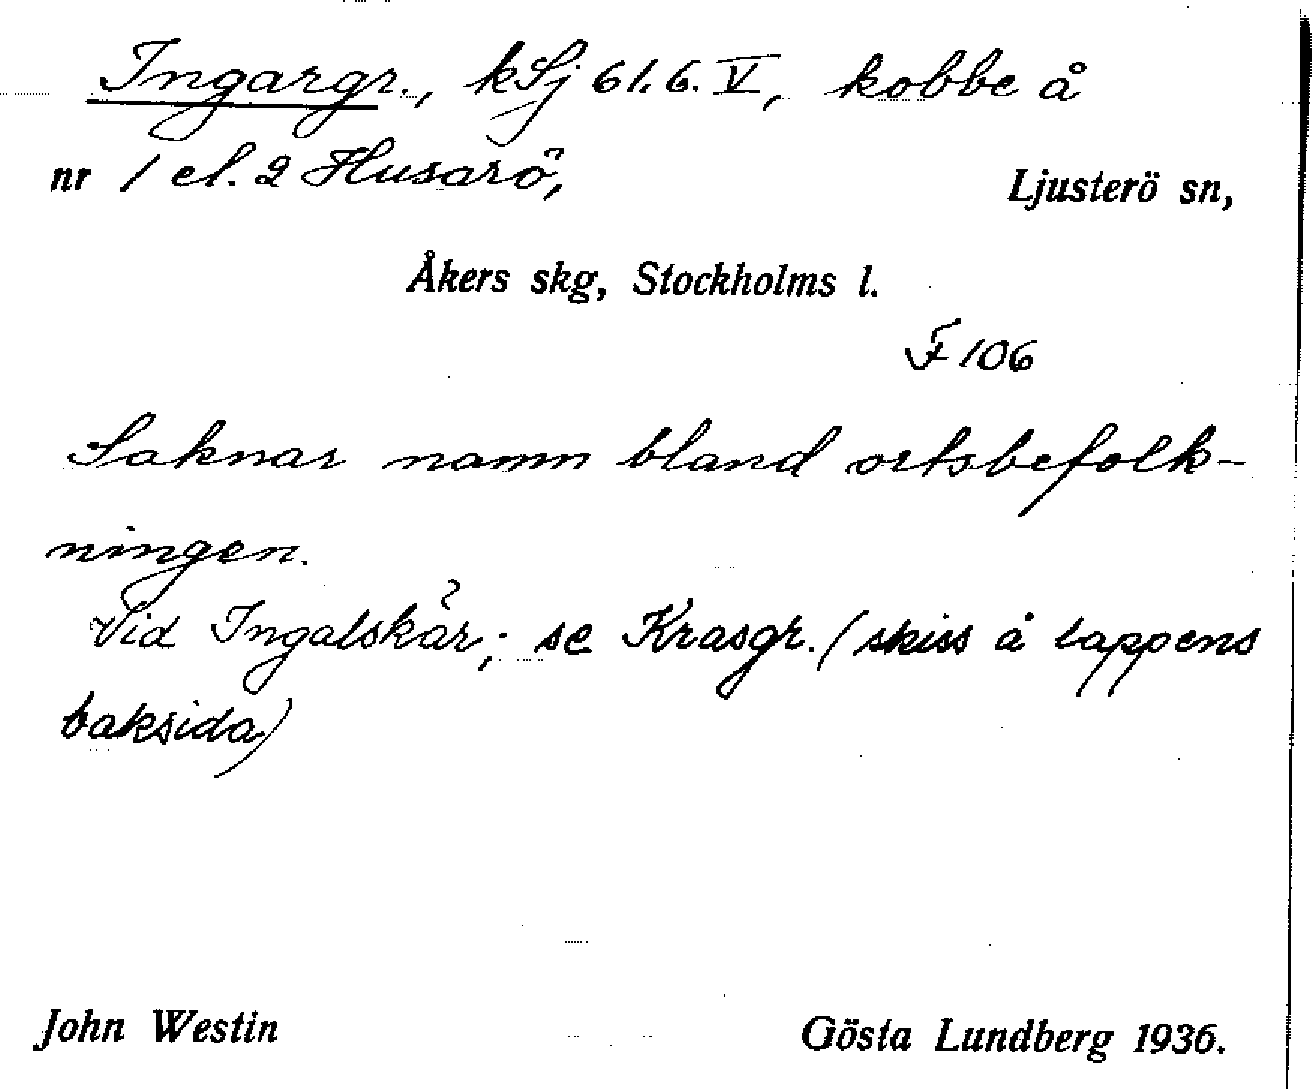 Ingargr., kSj 61.6.V, kobbe å
nr 1 el. 2 Husarö, Ljusterö sn,
Åkers skg, Stockholms l.
F 106
Saknar namn bland ortsbefolk-
ningen.
Vid Ingalskär; se Krasgr. (skiss å lappens
baksida)
John Westin Gösta Lundberg 1936.